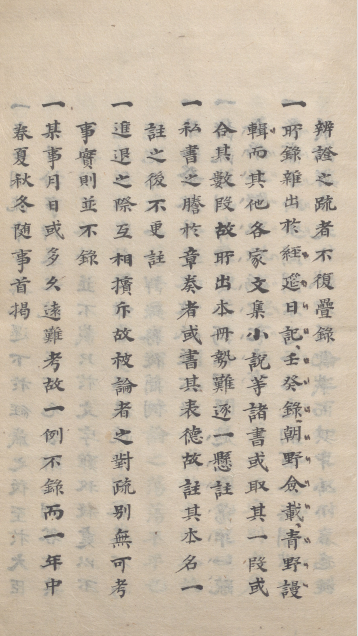 辨證之䟽者不復疊錄
一所錄雜出於經筵日記壬癸錄朝野僉載青野謾
輯而其他各家文集小說等諸書或取其一段或
合其數段故所出本冊勢難逐一懸註
一私書之謄於章奏者或書其表德故註其本名一
註之後不更註
一進退之際互相擯斥故被論者之對疏別無可考
事實則並不錄
一某事月日或多久遠難考故一例不錄而一年中
春夏秋冬隨事首揭